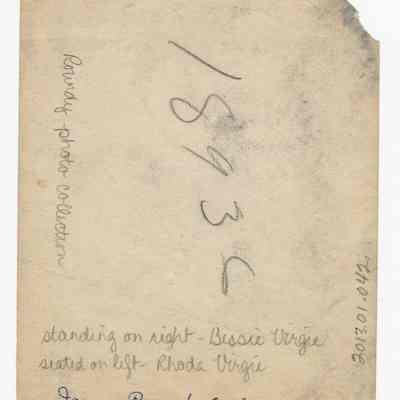 Roundy photo collection
1893c
201301.042
standing on right - Bessie Virgie
seated on left - Rhoda Virgie